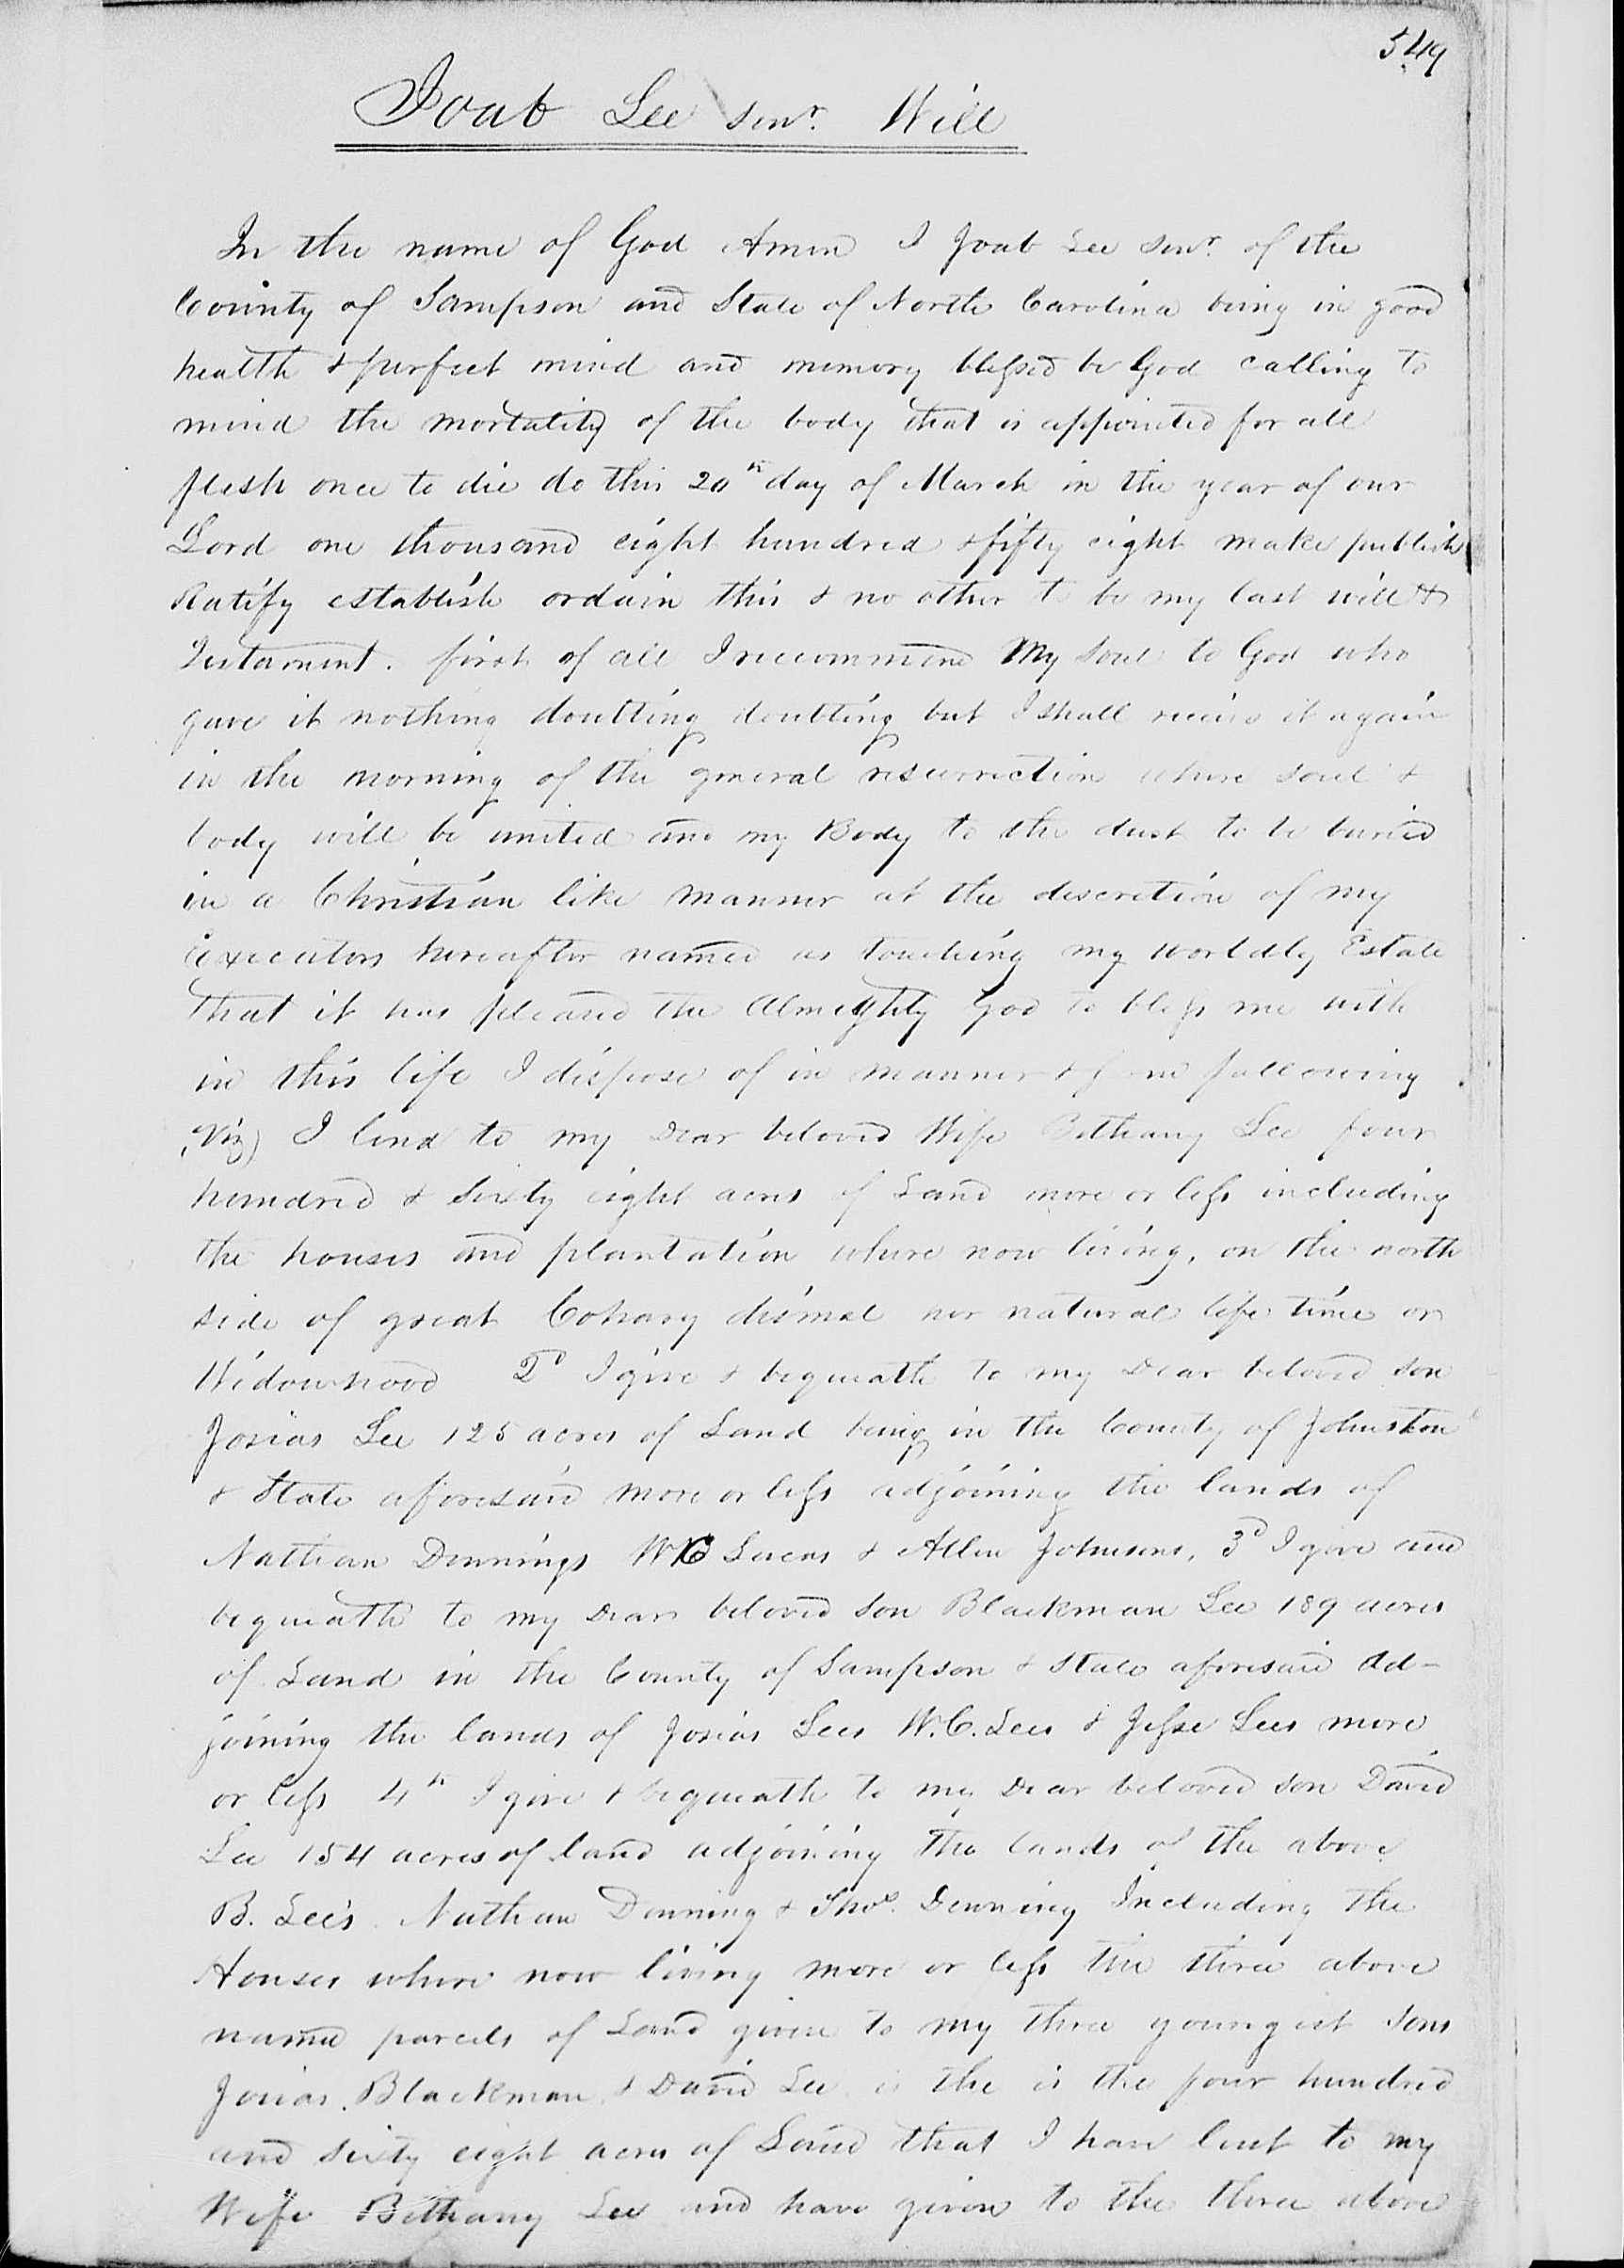 549
Joab Lee senr. Will
In the name of God Amen I Joab Lee senr. of the
County of Sampson and State of North Carolina being in good
health & purfect mind and memory blessed be God calling to
mind the mortality of the body that is appointed for all
flesh once to die do this 20th day of March in the year of our
Lord one thousand eight hundred & fifty eight make publish
Ratify establish ordain this & no other to be my last will &
Testament. first of all I reccommend My Soul to God who
gave it nothing doubting doubting but I shall recive it again
in the morning of the general resurrection where soul &
body will be united and my Body to the dust to be buried
in a Christian like manner at the discretion of my
executors hereafter named as touching my worldly Estate
that it has pleased the Almighty God to bless me with
in this life I dispose of in manner & form following
(Viz) I lend to my Dear beloved Wife Bethany Lee four
hundred & sixty eight acres of Land more or less including
the houses and plantation where now living, on the north
side of great Cohary dismal her natural life time or
Widowhood 2d I give & bequeath to my Dear beloved son
Josias Lee 125 acres of Land being in the County of Johnston
& State aforesaid more or less adjoining the lands of
Nathan Dennings W C Lucas & Allen Johnsons, 3d I give and
bequeath to my Dear beloved son Blackman Lee 189 acres
of Land in the County of Sampson & State aforesaid Ad-
joining the lands of Josias Lees W. C. Lees & Jesse Lees more
or less 4th I give & bequeath to my Dear beloved son David
Lee 154 acres of land adjoining the lands of the above
B. Lee's Nathan Denning & Thos. Denning Including the
Houses where now living more or less the three above
named parcels of Land given to my three youngest Sons
Josias, Blackman, & David Lee is the is the four hundred
and sixty eight acres of Land that I have lent to my
Wife Bethany Lee and have given to the three above